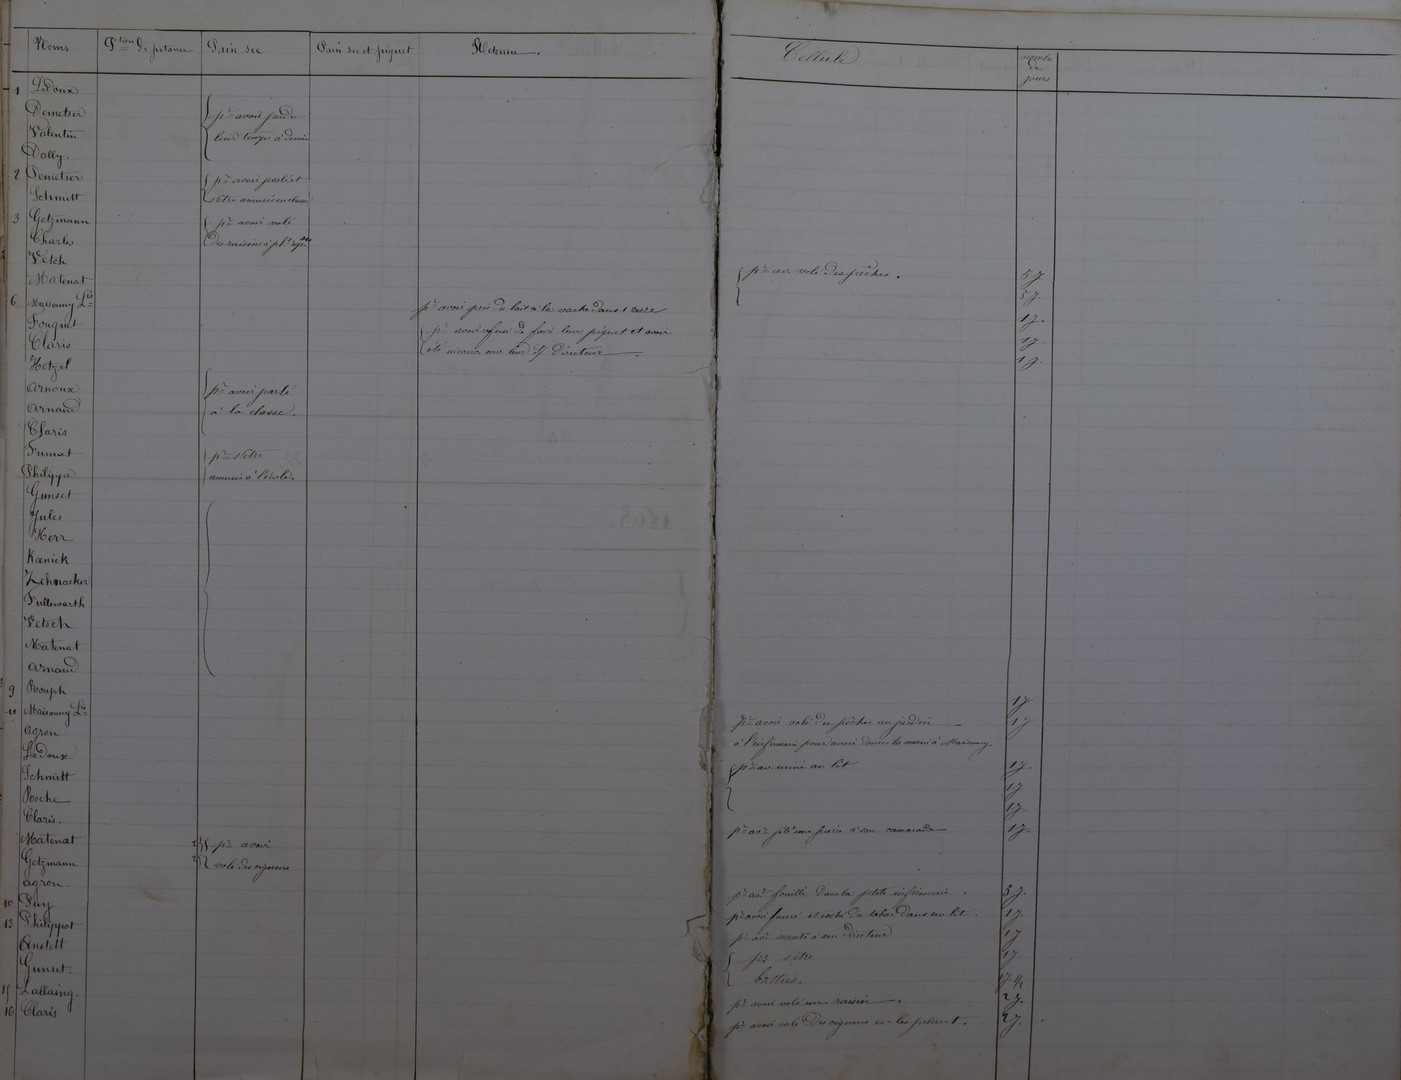 Noms P.tion de pitance Pain sec Pain sec et piquet Retenue. Cellule nombre de jours
1 Ledoux
Demetser pr avoir perdu
Valentin leur temps à dessin
Dolly.
2 Demetser pr avoir parlé et
Schmitt s'être amusé en classe
3 Getzmann pr avoir volé
Charles des raisins à plrs
Vetch
Matenat pr av. volé des pêches. 5 j.
6 Maisonny Ls pr avoir pris du lait à la vache dans 5 j.
Fouquet pr avoir refusé de faire leur piquet et avoir 1 j.
Claris été envers leur directeur. 1 j.
Hetzel 1 j.
Arnoux pr avoir parlé
Arnaud à la classe.
Claris
Fumat pr s'être
Philippe amusés à l'école.
Gunset
Jules
Herr
Kœnick
Zehnacker
Fullewarth
Vetsch
Matenat
Arnaud
9 Rouph 1 j
10 Maisonny Ls pr avoir volé des pêches au jardin 1 j
Agron à l'infirmerie pour avoir la main à Maisonny
Ledoux pr av. uriné au lit 1 j.
Schmitt 1 j
Rosché 1 j.
Claris. pr avr jeté une à son camarade 1 j.
Matenat pr avoir
Getzmann volé des oignons
Agron. pr avr fouillé dans la petite infirmerie. 3 j.
10 Puy pr avoir fumé et caché du tabac dans son lit. 1 j.
13 Philippot pr avr menti à son directeur 1 j
Anstett pr s'être 1 j.
Gunset. battus. 1 j 1/2
15 Lallaing. pr avoir volé un raisin. 2 j.
16 Claris pr avoir volé des oignons en les pelant. 2 j.